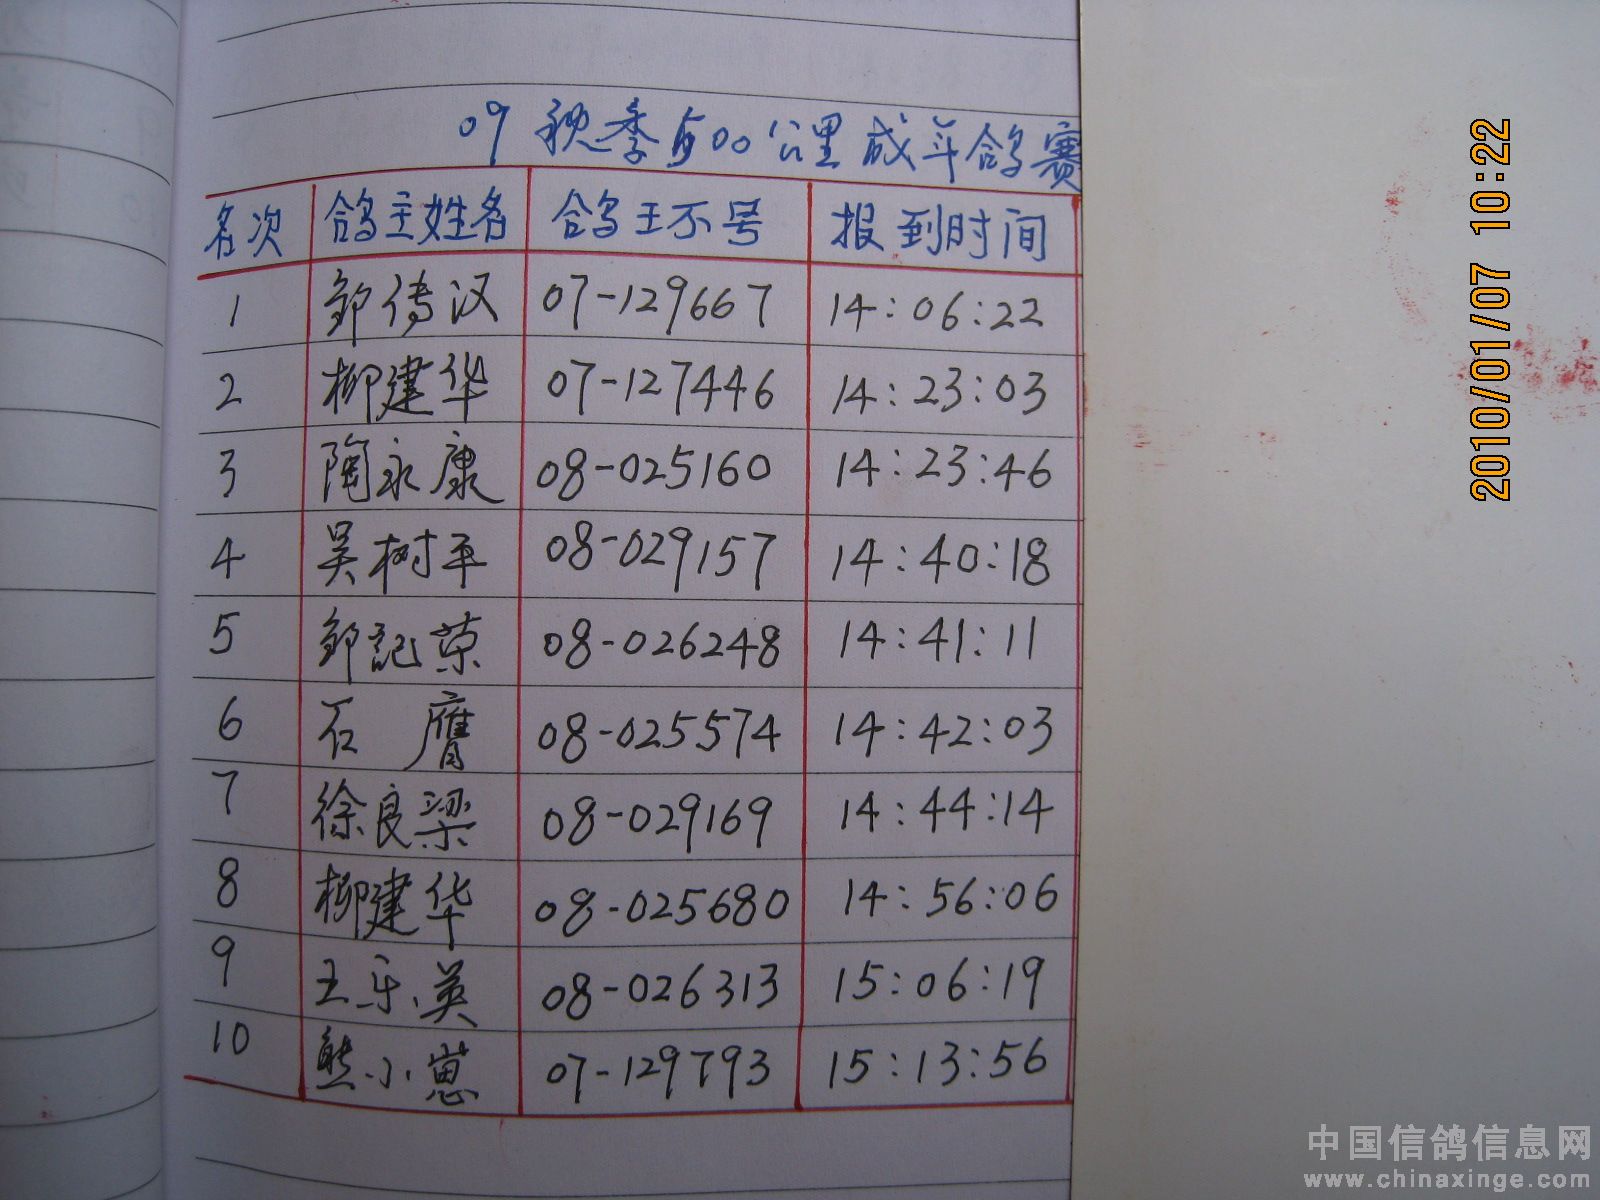 09 秋季500公里成年鸽赛
名次 鸽主姓名 鸽王不号 报到时间
1 邹传汉 07-129667 14:06:22
2 柳建华 07-127446 14:23:03
3 陶永康 08-025160 14:23:46
4 吴树平 08-029157 14:40:18
5 邹記荣 08-026248 14:41:11
6 石 膺 08-025574 14:42:03
7 徐良梁 08-029169 14:44:14
8 柳建华 08-025680 14:56:06
9 王乐英 08-026313 15:06:19
10 熊小崽 07-129793 15:13:56
2010/01/07 10:22
中国信鸽信息网
www.chinaxinge.com